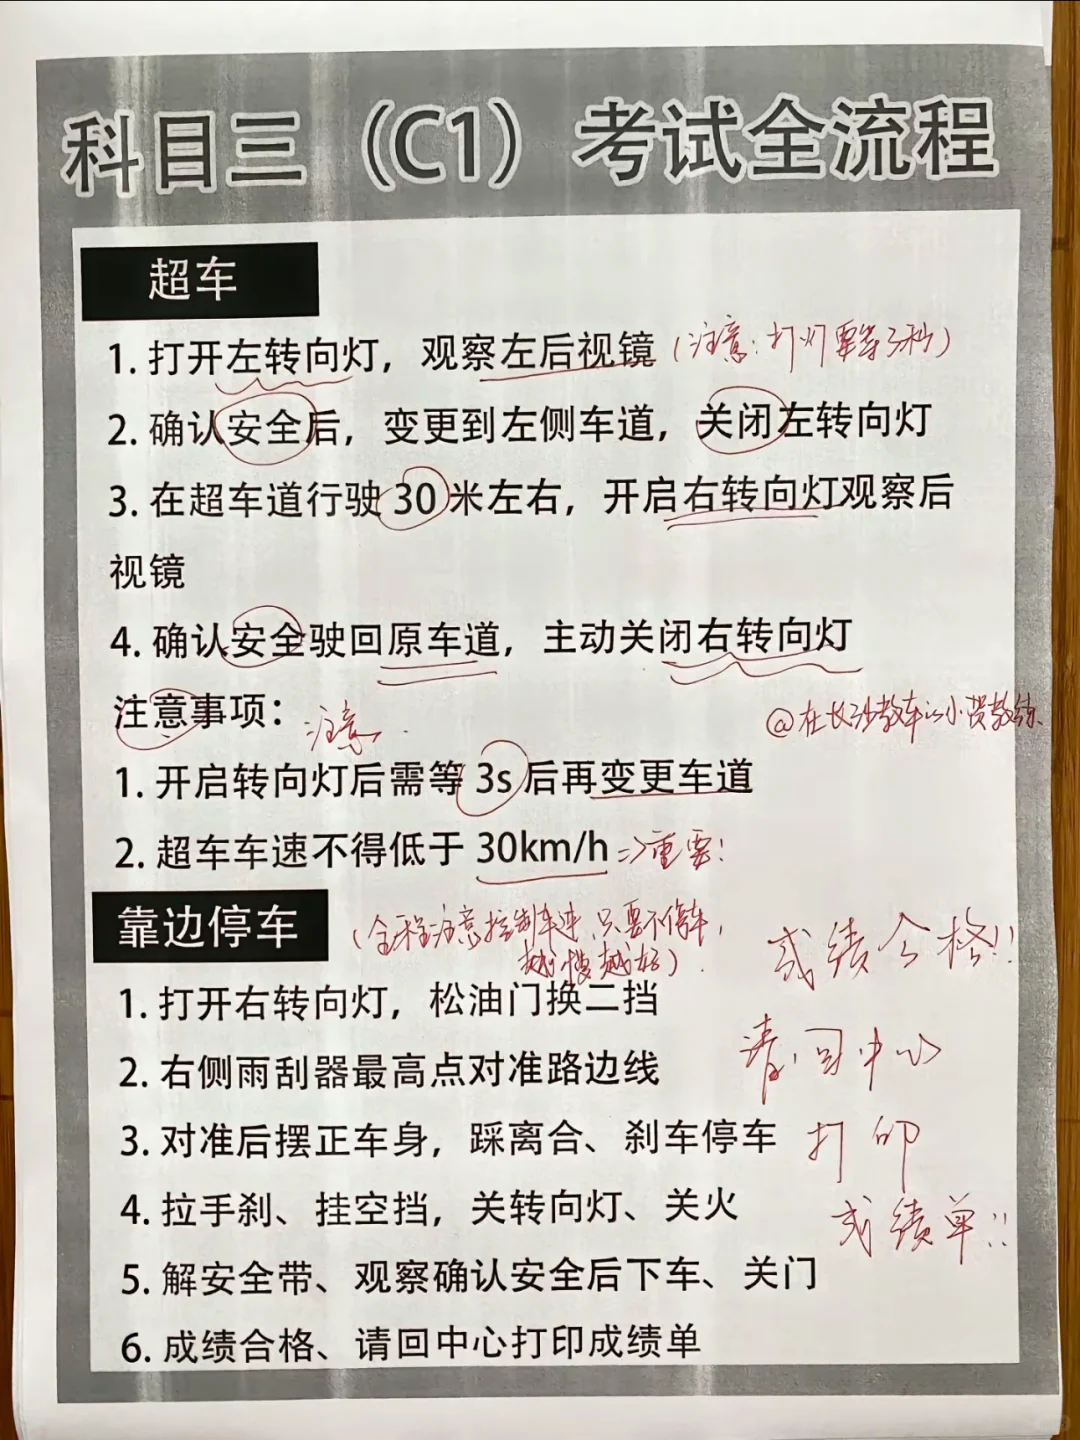 科目三（C1）考试全流程
超车
1. 打开左转向灯，观察左后视镜（注意：打灯要等3秒）
2. 确认安全后，变更到左侧车道，关闭左转向灯
3. 在超车道行驶 30 米左右，开启右转向灯观察后
视镜
4. 确认安全驶回原车道，主动关闭右转向灯
注意事项： 注意
@在长沙教车的小贺教练
1. 开启转向灯后需等 3s 后再变更车道
2. 超车车速不得低于 30km/h =>重要！
靠边停车 （全程注意控制车速，只要不停车，
越慢越好）
成绩合格！！
1. 打开右转向灯，松油门换二挡
请回中心
2. 右侧雨刮器最高点对准路边线
3. 对准后摆正车身，踩离合、刹车停车 打印
4. 拉手刹、挂空挡，关转向灯、关火 成绩单！！
5. 解安全带、观察确认安全后下车、关门
6. 成绩合格、请回中心打印成绩单